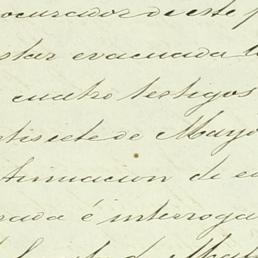 ocurador de este p
star evacuada l
cuatro testigos
ntisiete de Mayo
timacion de e
rada é interroga